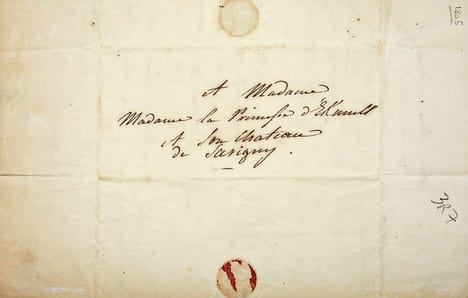 1805
A Madame
Madame la Princesse d'Ekmull
A Son Chateau
de Savigny.